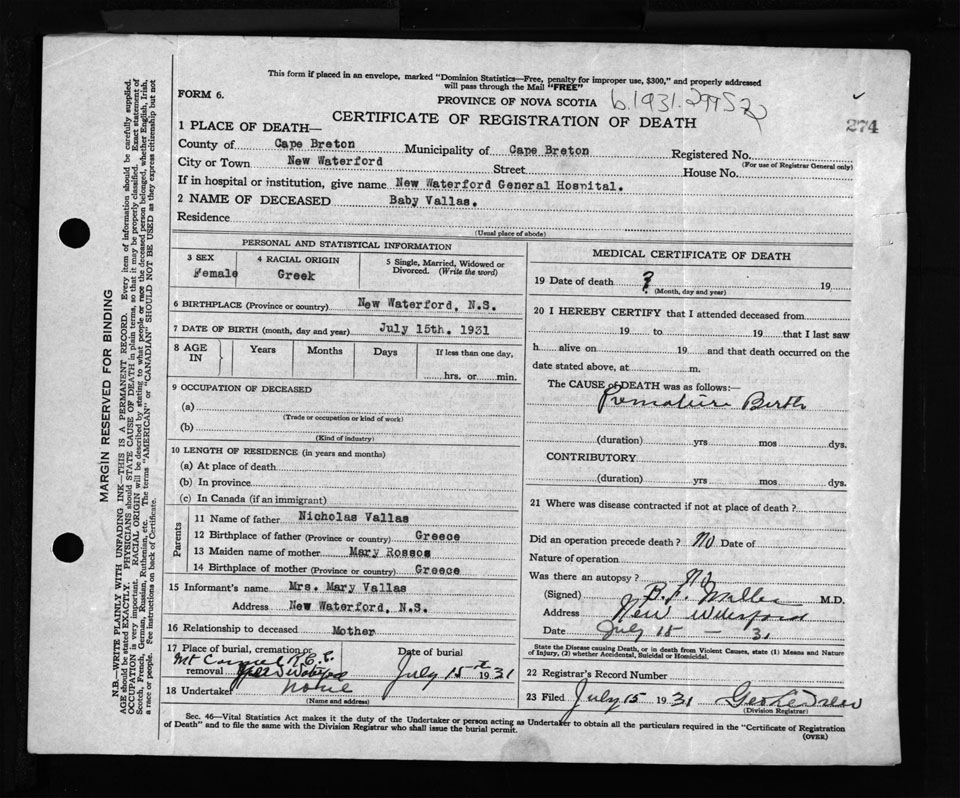 This form if placed in an envelope, marked "Dominion Statistics—Free, penalty for improper use, $300," and properly addressed
will pass through the Mail "FREE"
FORM 6.
PROVINCE OF NOVA SCOTIA
b.1931.
274
CERTIFICATE OF REGISTRATION OF DEATH
1 PLACE OF DEATH—
County of Cape Breton Municipality of Cape Breton Registered No.
(For use of Registrar General only)
City or Town New Waterford Street House No.
If in hospital or institution, give name New Waterford General Hospital.
2 NAME OF DECEASED Baby Vallas.
Residence
(Usual place of abode)
PERSONAL AND STATISTICAL INFORMATION
3 SEX 4 RACIAL ORIGIN 5 Single, Married, Widowed or
Divorced. (Write the word)
Female Greek
6 BIRTHPLACE (Province or country) New Waterford, N.S.
7 DATE OF BIRTH (month, day and year) July 15th. 1931
8 AGE IN Years Months Days If less than one day,
hrs. or min.
9 OCCUPATION OF DECEASED
(a)
(Trade or occupation or kind of work)
(b)
(Kind of industry)
10 LENGTH OF RESIDENCE (in years and months)
(a) At place of death
(b) In province
(c) In Canada (if an immigrant)
Parents
11 Name of father Nicholas Vallas
12 Birthplace of father (Province or country) Greece
13 Maiden name of mother Mary Rossos
14 Birthplace of mother (Province or country) Greece
15 Informant's name Mrs. Mary Vallas
Address New Waterford, N.S.
16 Relationship to deceased Mother
17 Place of burial, cremation or Date of burial
removal Mt Carmel July 15th 1931
18 Undertaker None
(Name and address)
MEDICAL CERTIFICATE OF DEATH
19 Date of death ? 19
(Month, day and year)
20 I HEREBY CERTIFY that I attended deceased from
19 to 19 that I last saw
h alive on 19 and that death occurred on the
date stated above, at m.
The CAUSE of DEATH was as follows:—
Premature Birth
(duration) yrs mos dys.
CONTRIBUTORY
(duration) yrs mos dys.
21 Where was disease contracted if not at place of death?
Did an operation precede death? No Date of
Nature of operation
Was there an autopsy? No
(Signed) M.D.
Address New Waterford
Date July 15 – 31
State the Disease causing Death, or in death from Violent Causes, state (1) Means and Nature
of Injury, (2) whether Accidental, Suicidal or Homicidal.
22 Registrar's Record Number
23 Filed July 15 1931
(Division Registrar)
Sec. 46—Vital Statistics Act makes it the duty of the Undertaker or person acting as Undertaker to obtain all the particulars required in the "Certificate of Registration
of Death" and to file the same with the Division Registrar who shall issue the burial permit.
(OVER)
MARGIN RESERVED FOR BINDING
N.B.—WRITE PLAINLY WITH UNFADING INK—THIS IS A PERMANENT RECORD. Every item of information should be carefully supplied.
AGE should be stated EXACTLY. PHYSICIANS should STATE CAUSE OF DEATH in plain terms, so that it may be properly classified. Exact statement of
OCCUPATION is very important. RACIAL ORIGIN will be described by stating to what people or race the deceased person belonged, whether English, Irish,
Scotch, French, German, Russian, Ruthenian, etc. The terms "AMERICAN" or "CANADIAN" SHOULD NOT BE USED as they express citizenship but not
a race or people. See instructions on back of Certificate.